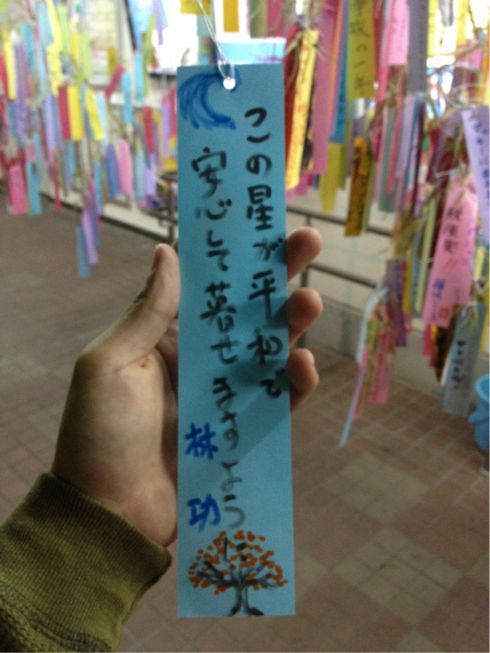 この星が平和で
安心して暮せますように
林功